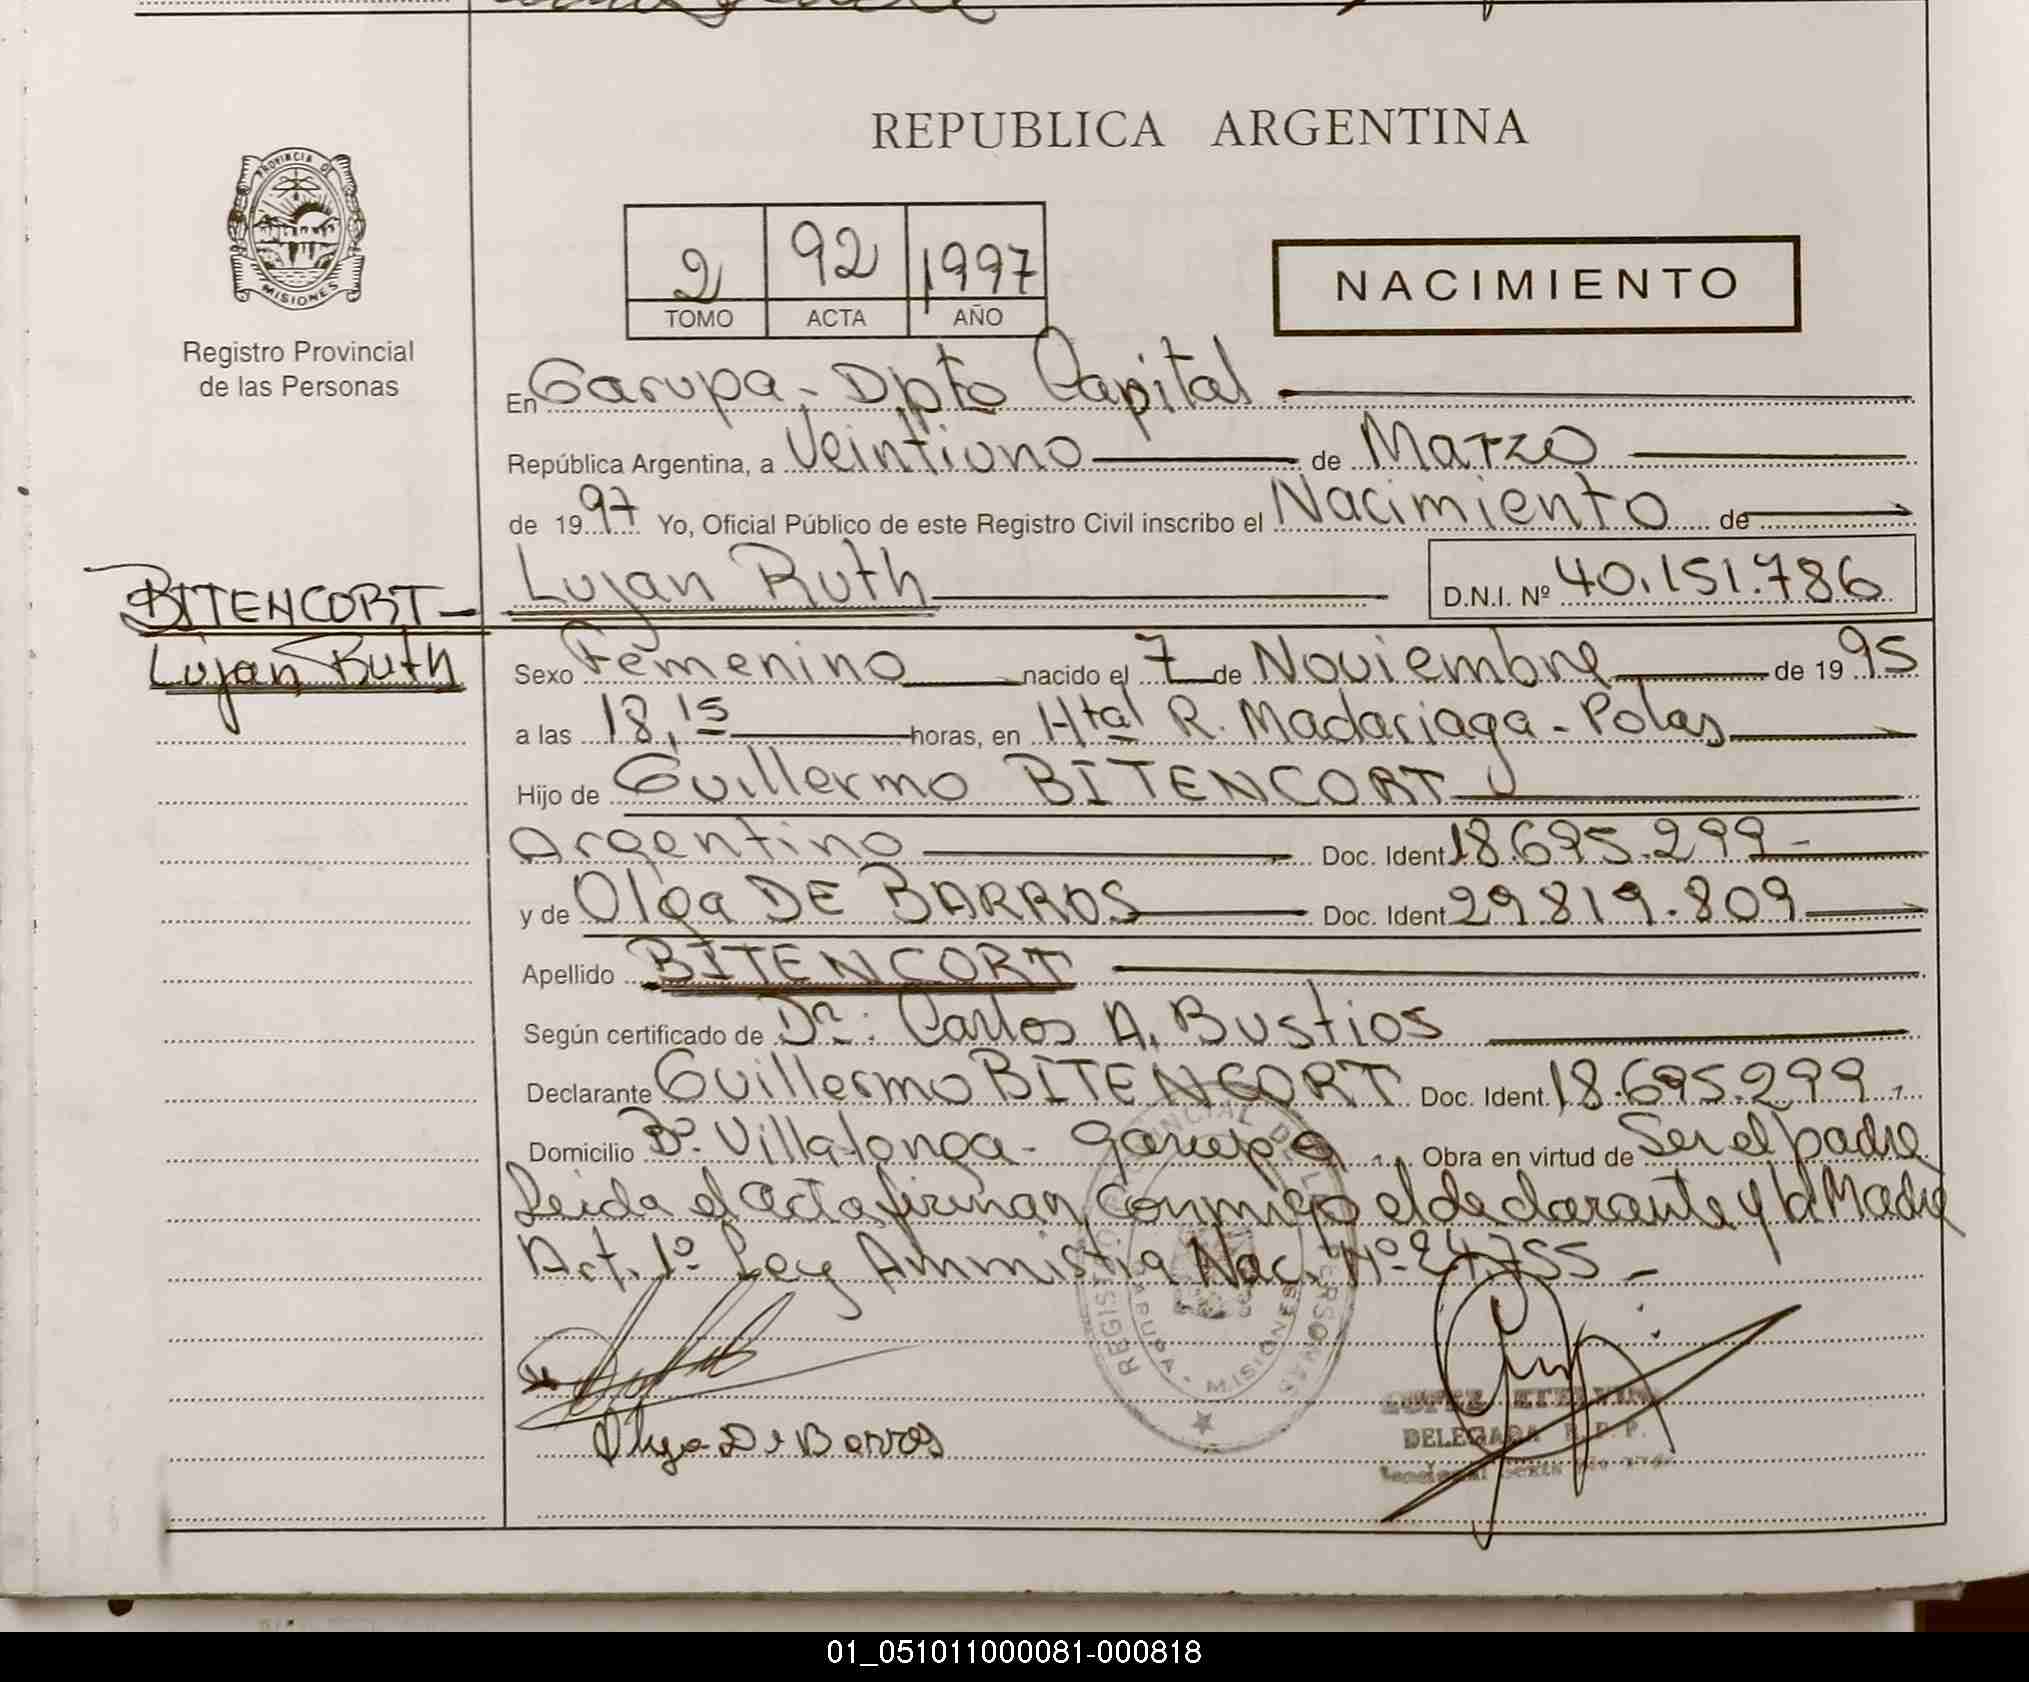 REPUBLICA ARGENTINA
PROVINCIA DE
MISIONES
Registro Provincial
de las Personas
2 92 1997
TOMO ACTA AÑO
NACIMIENTO
En Garupa - Dpto Capital
República Argentina, a Veintiuno de Marzo
de 1997 Yo, Oficial Público de este Registro Civil inscribo el Nacimiento de
BITENCORT -
Lujan Ruth
Lujan Ruth D.N.I. Nº 40.151.786
Sexo Femenino nacido el 7 de Noviembre de 1995
a las 18,15 horas, en Htal R. Madariaga - Pdas
Hijo de Guillermo BITENCORT
Argentino Doc. Ident 18.695.299 -
y de Olga DE BARROS Doc. Ident 29819.809
Apellido BITENCORT
Según certificado de Dr. Carlos A. Bustios
Declarante Guillermo BITENCORT Doc. Ident. 18.695.299
Domicilio Bº. Villalonga - Garupa Obra en virtud de Ser el padre
Leida el acta firman conmigo el declarante y la Madre
Art. 1º Ley Ammistia Nac. Nº 24755 -
REGISTRO PROVINCIAL DE LAS PERSONAS
GARUPA - MISIONES
Olga De Barros
LOPEZ ETELVINA
DELEGADA R. P. P.
01_051011000081-000818